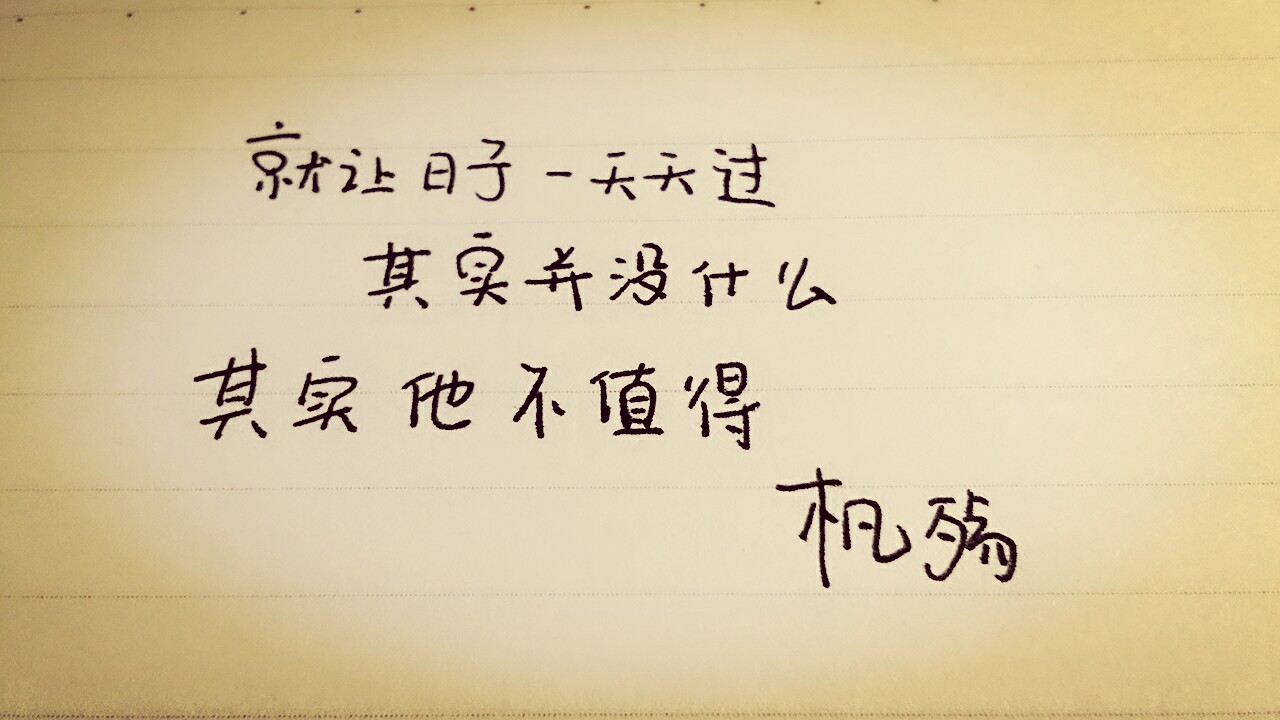 就让日子一天天过
其实并没什么
其实他不值得
机殇